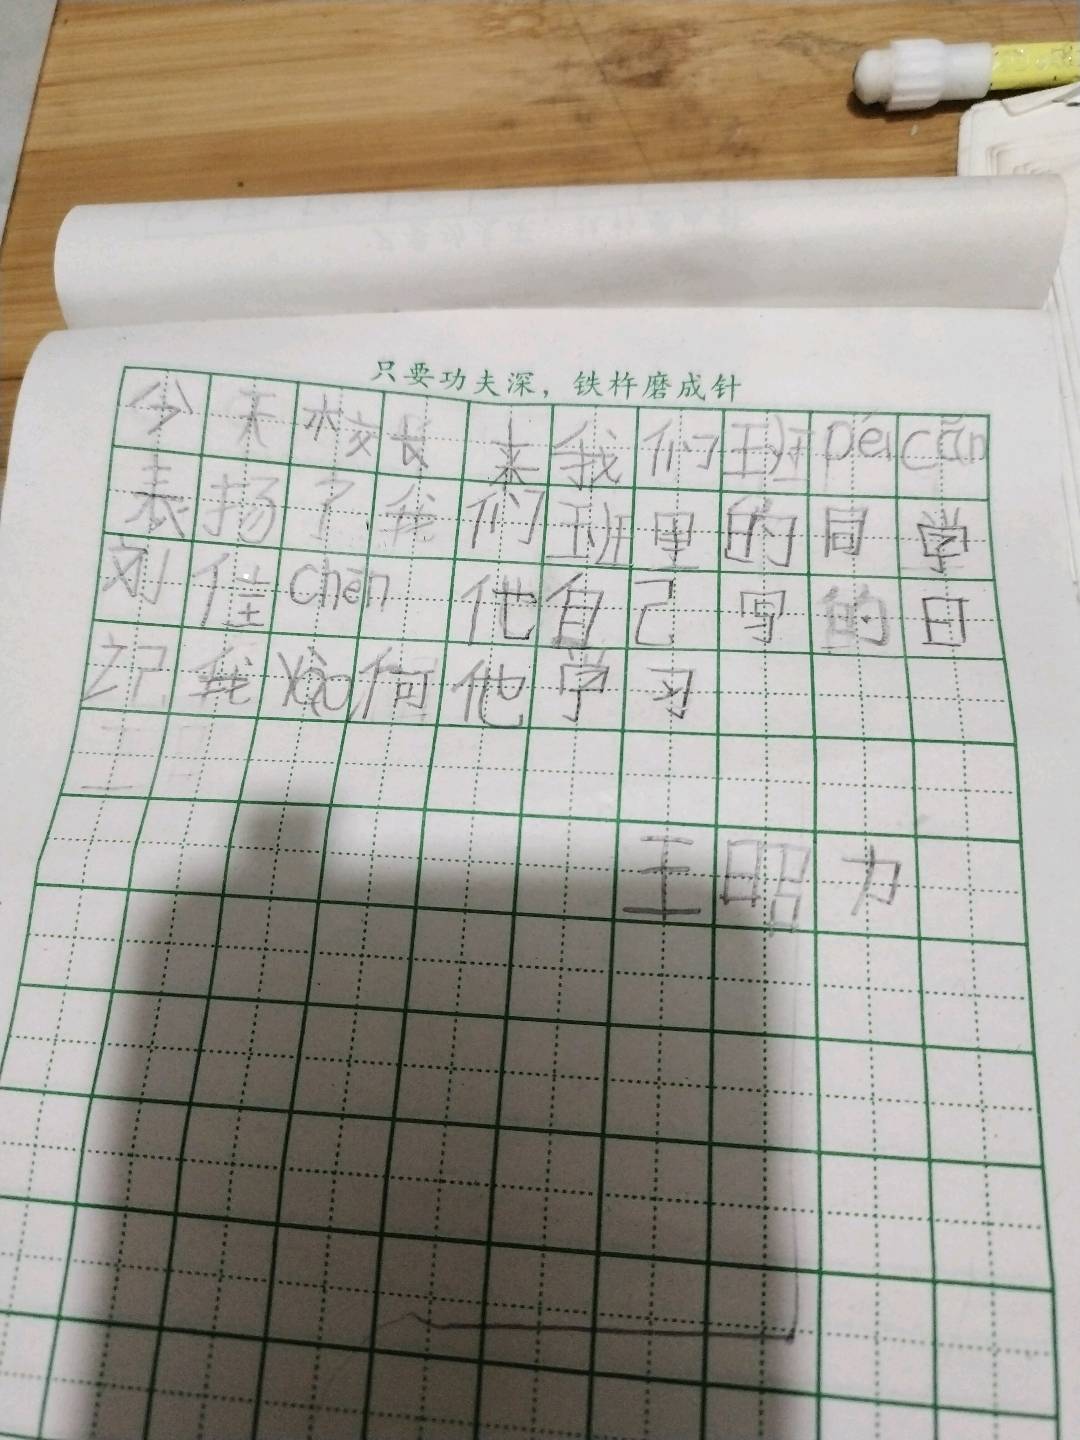 只要功夫深，铁杵磨成针
今天校长来我们班péicān
表扬了我们班里的同学
刘佳chén他自己写的日
记我yào向他学习
王昭力